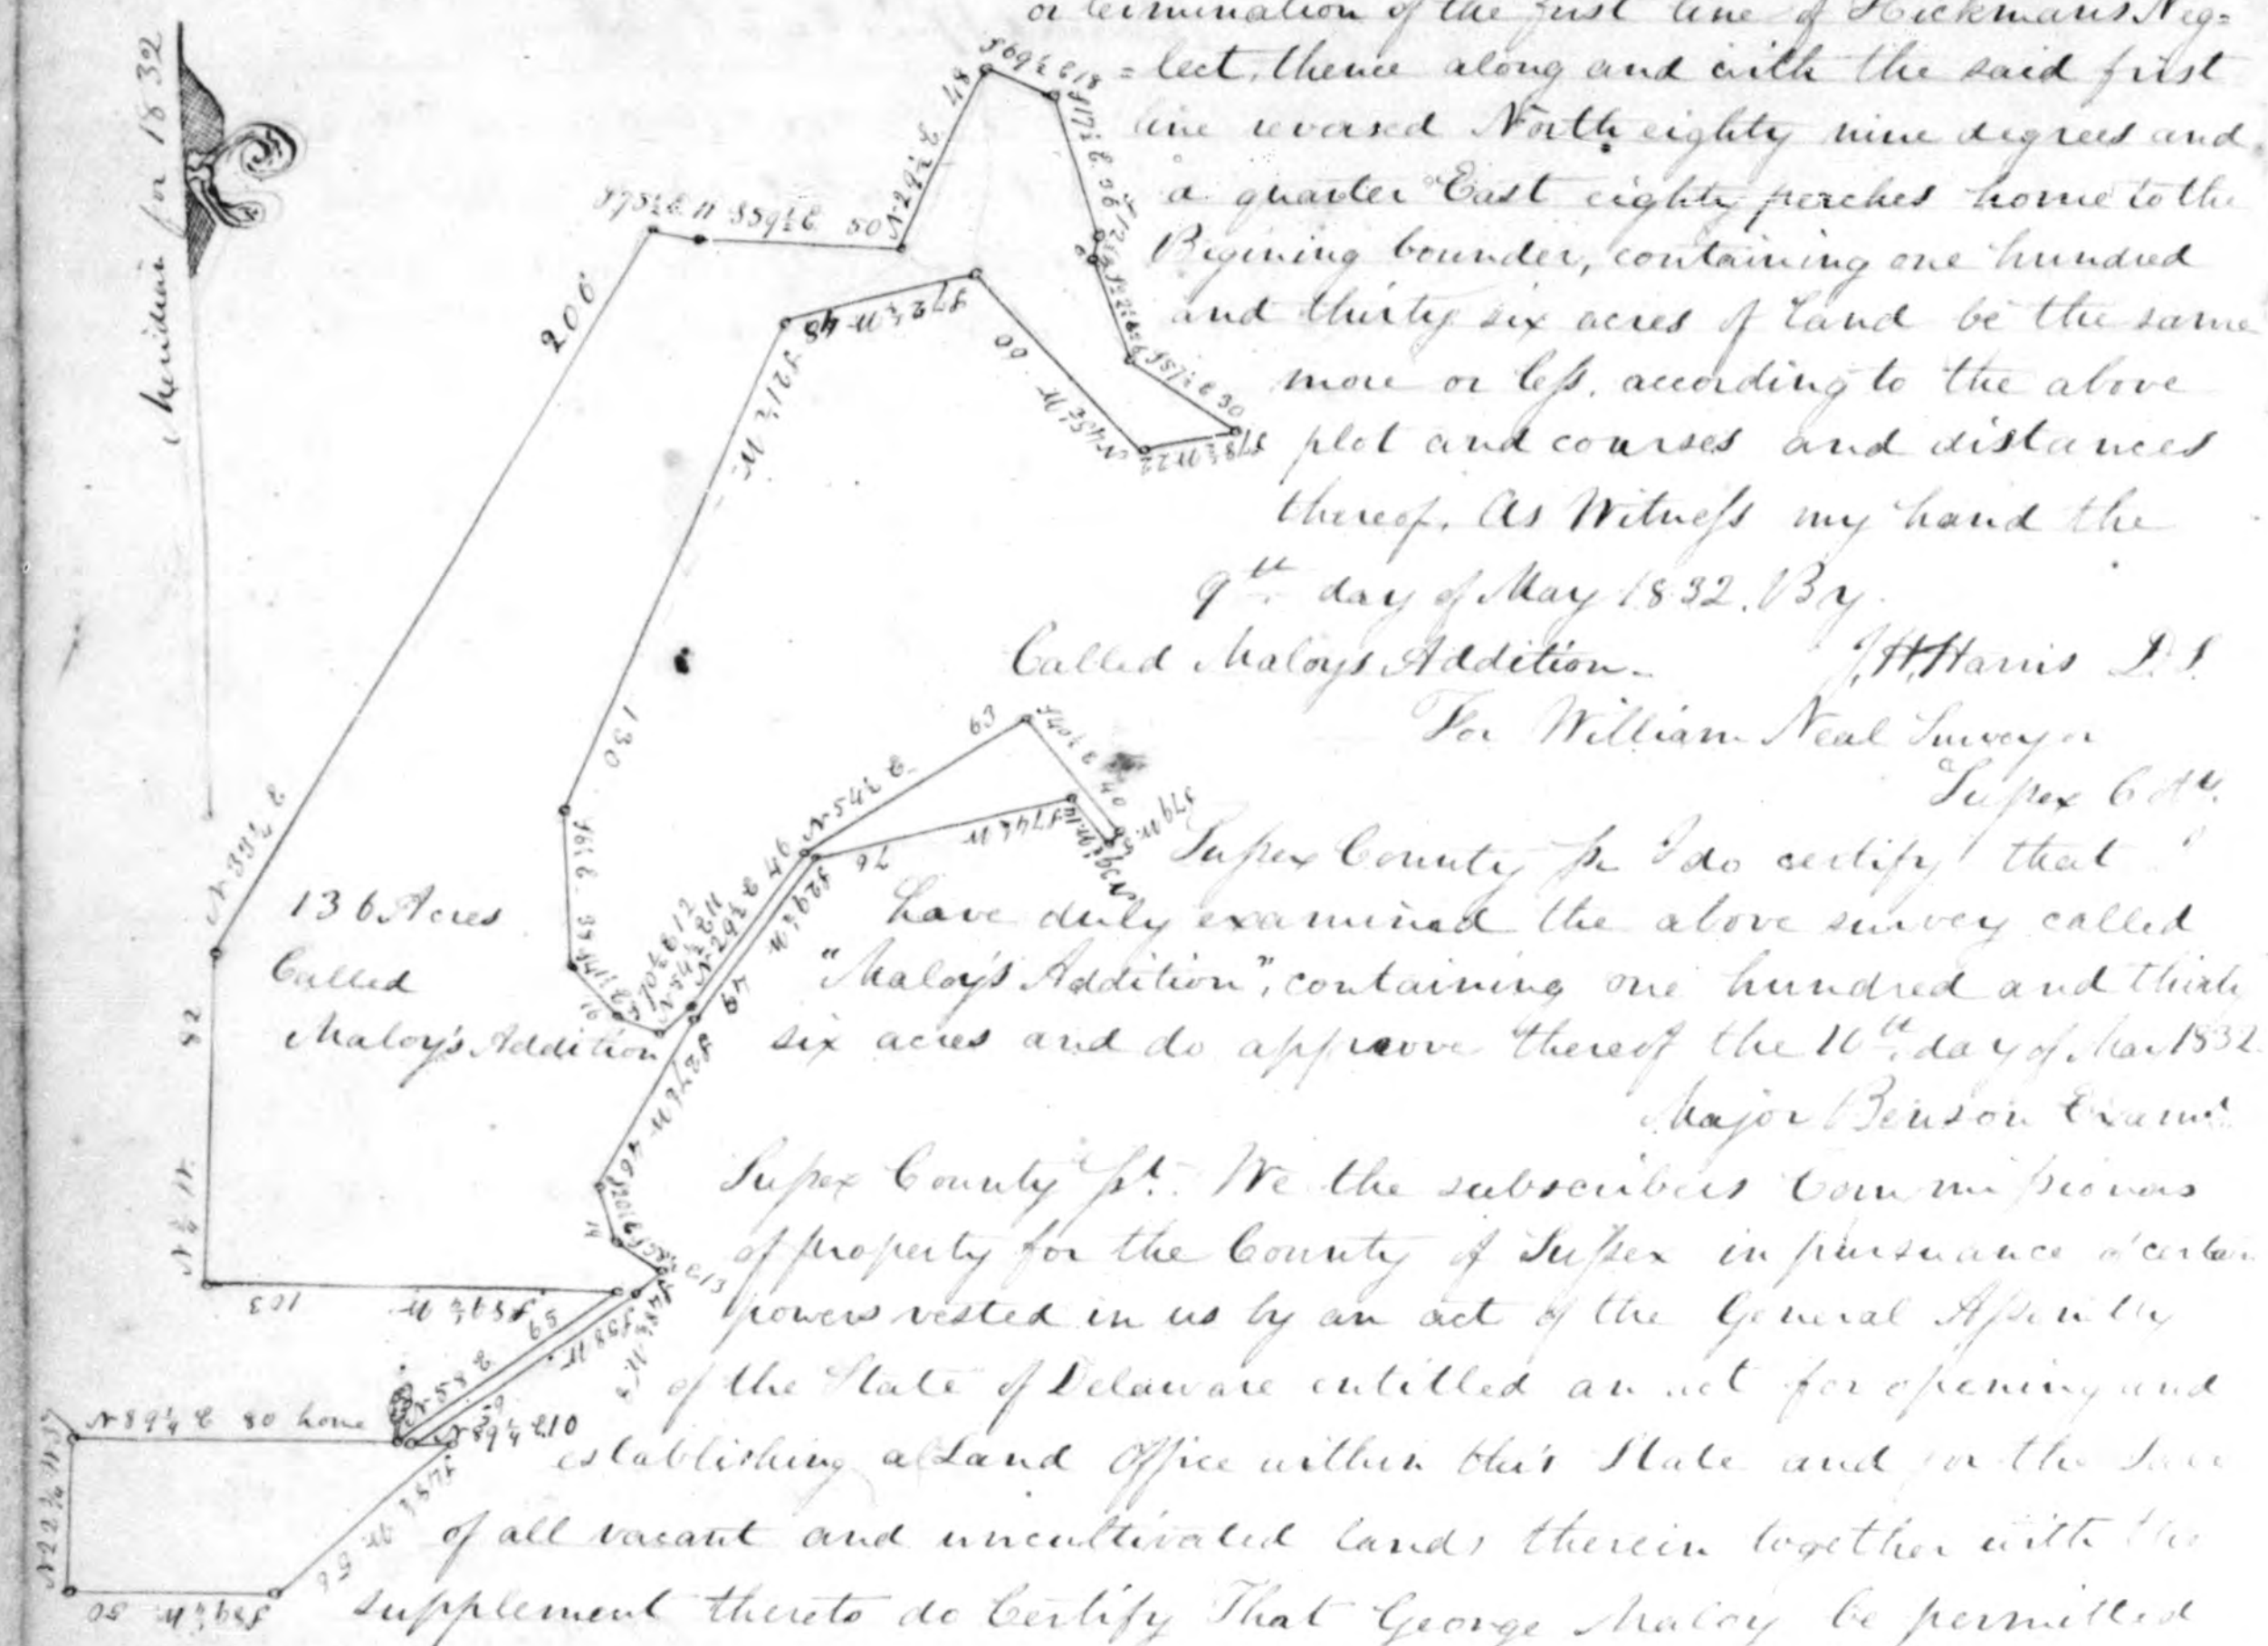 or termination of the first line of Hickmans Neg=
=lect, thence along and with the said first
line reversed North eighty nine degrees and
a quarter East eighty perches home to the
Begining bounder, containing one hundred
and thirty six acres of land be the same
more or less, according to the above
plot and courses and distances
thereof. As Witness my hand the
9th day of May 1832. By
Called Maloys Addition. J. H. Harris D. S.
For William Neal Surveyor
Sussex
Sussex County I do certify that
have duly examined the above survey called
"Maloy's Addition", containing one hundred and thirty
six acres and do approove thereof the 10th day of May 1832
Major Benson Examr.
Sussex County We the subscribers Commissioners
of property for the County of Sussex in pursuance o' certain
powers vested in us by an act of the General Assembly
of the State of Delaware entitled an act for opening and
establishing a Land Office within this State and for the Sale
of all vacant and uncultivated lands therein together with the
supplement thereto do Certify That George Maloy be permitted
Meridian for 1832
136 Acres
Called
Maloy's Addition
N 33½ E
206
S 75½ E 11
S 59½ E 50
N 29½ E 48
S 69½ E 18
S 17½ E 36
S 72½ W 48
N 43½ W
60
S 21½ W
130
S 70½ E 12
N 54½ E 11
N 29½ E 46
N 54½ E
63
S 40½ E 40
S 79 W
S 74½ W
76
S 29½ W
49
S 27½ W 46
14
S 58 W
N 58 E
59
S 89½ W
103
82
N ¼ W
N 89¼ E 80 home
N 89¼ E 10
N 2¾ W 37
S 89½ W 50